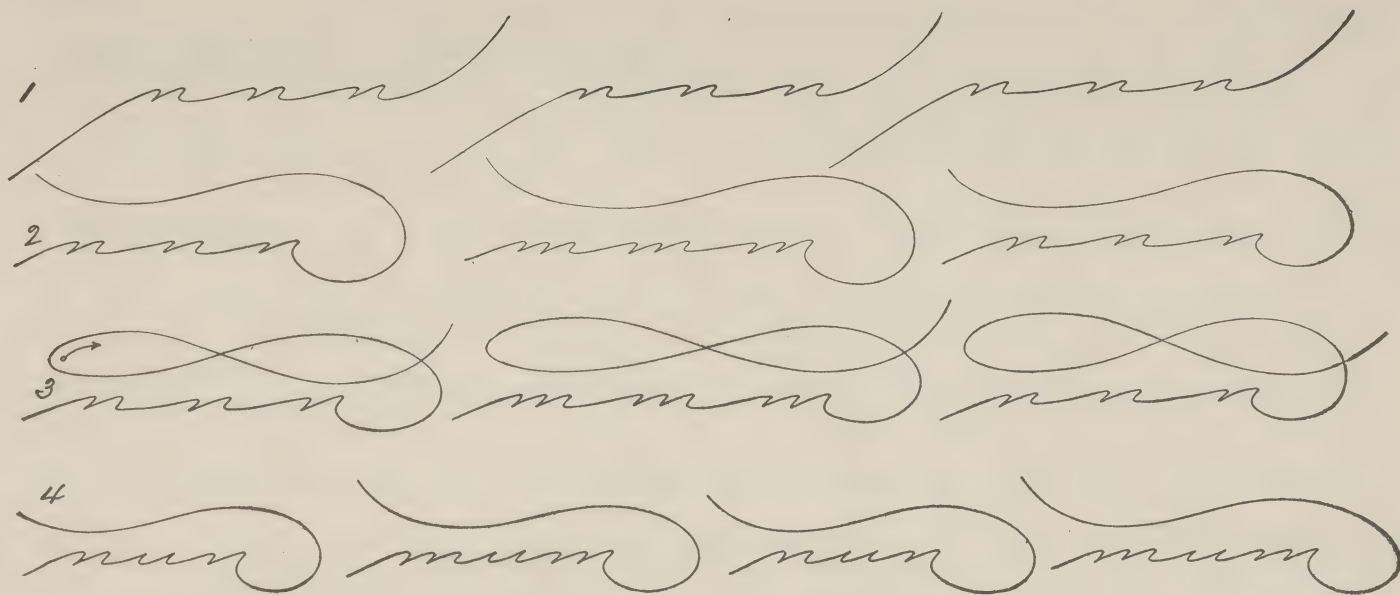 1 n n n n n n n n n
2 n n n m m m n n n
3 n n n m m m n n n
4 nun mum nun mum